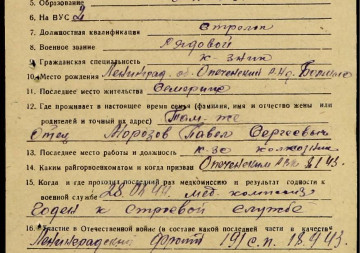 5. Образование
6. На ВУС 2
7. Должностная квалификация Стрелок
8. Военное звание Рядовой
9. Гражданская специальность к-зник
10. Место рождения Ленинград. об. Опеченский р-н д.
11. Последнее место жительства
12. Где проживает в настоящее время семья (фамилия, имя и отчество жены или
родителей и точный их адрес) Там-же
Отец Морозов Павел Сергеевич
13. Последнее место работы и должность к-зе колхозник
14. Каким райгорвоенкоматом и когда призван Опеченским РВК 43.
15. Когда и где проходил последний раз медкомиссию и результат годности к
военной службе 28. 44. мед. комиссия
Годен к строевой службе
16. Участие в Отечественной войне (в составе какой последней части в качест-
Ленинградский фронт 191 с.п. 18.9.43.